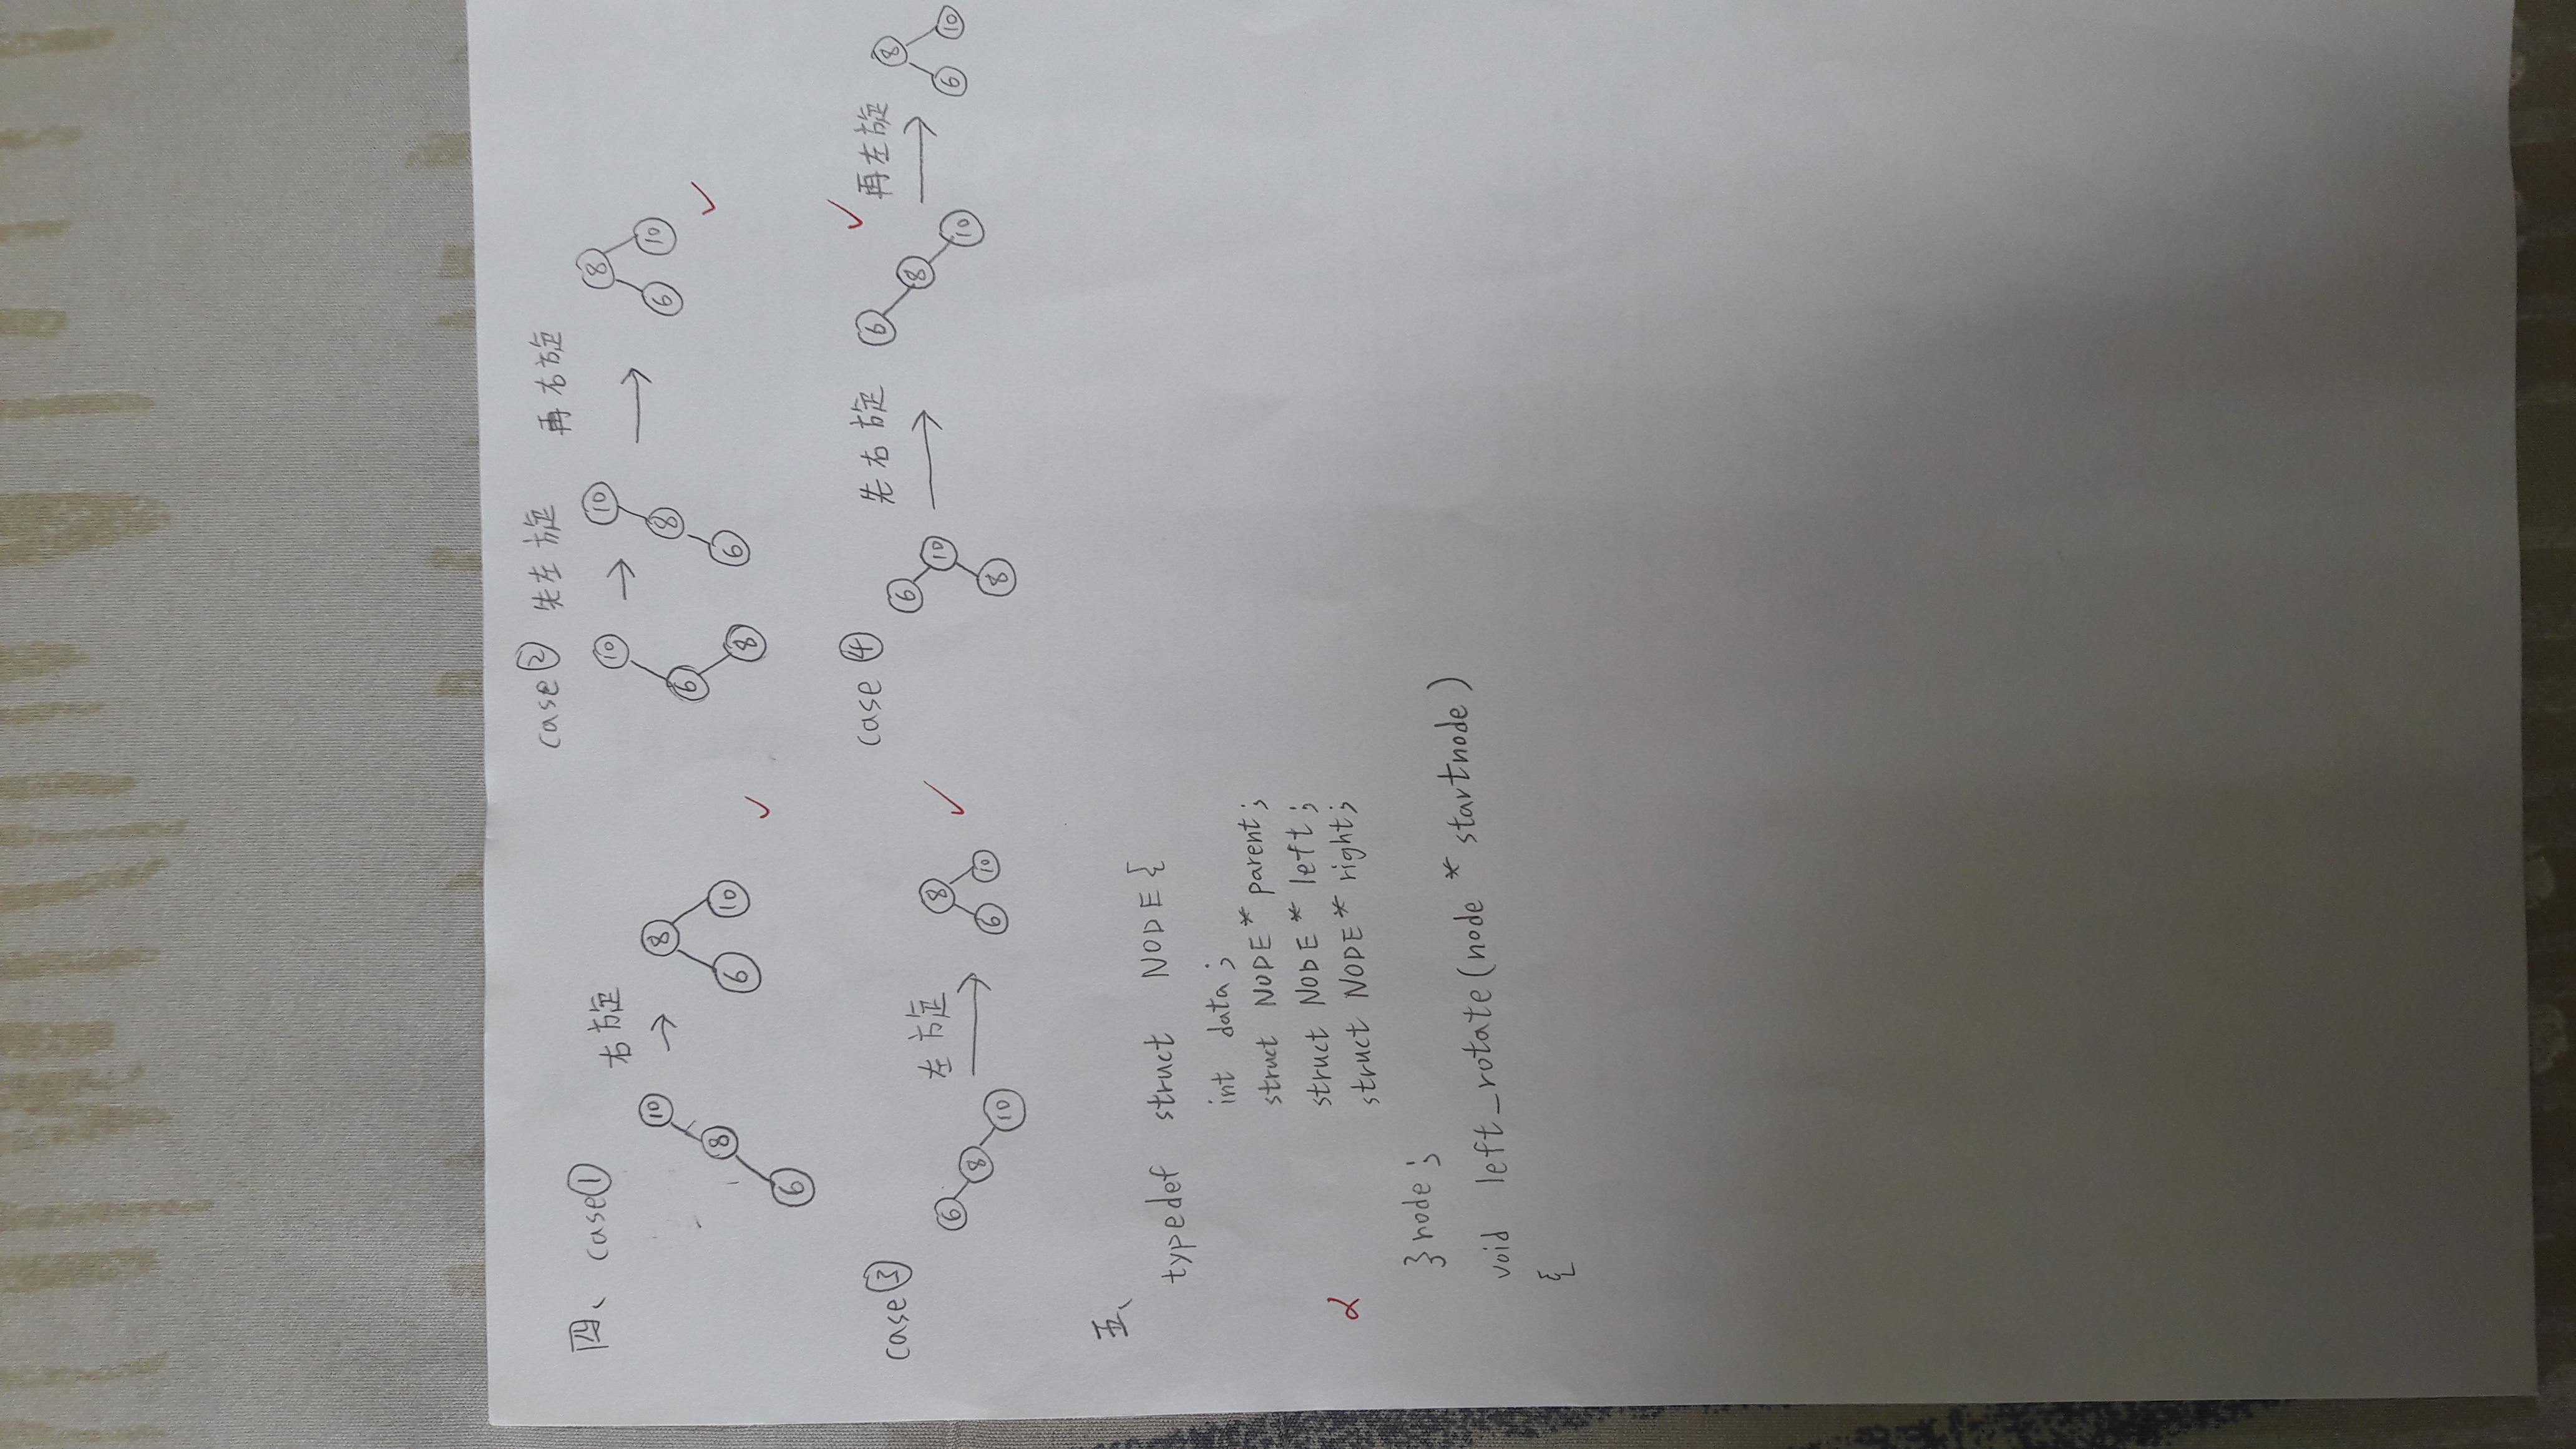 四、 case①
右旋
10
8
6
8
6 10
case② 先左旋 再右旋
10
6
8
10
8
6
8
6 10
case③
左旋
6
8
10
8
6 10
case ④ 先右旋 再左旋
6
10
8
6
8
10
8
6 10
五、
typedef struct NODE {
int data ;
struct NODE * parent ;
struct NODE * left ;
struct NODE * right ;
} node ;
void left_rotate (node * startnode )
{